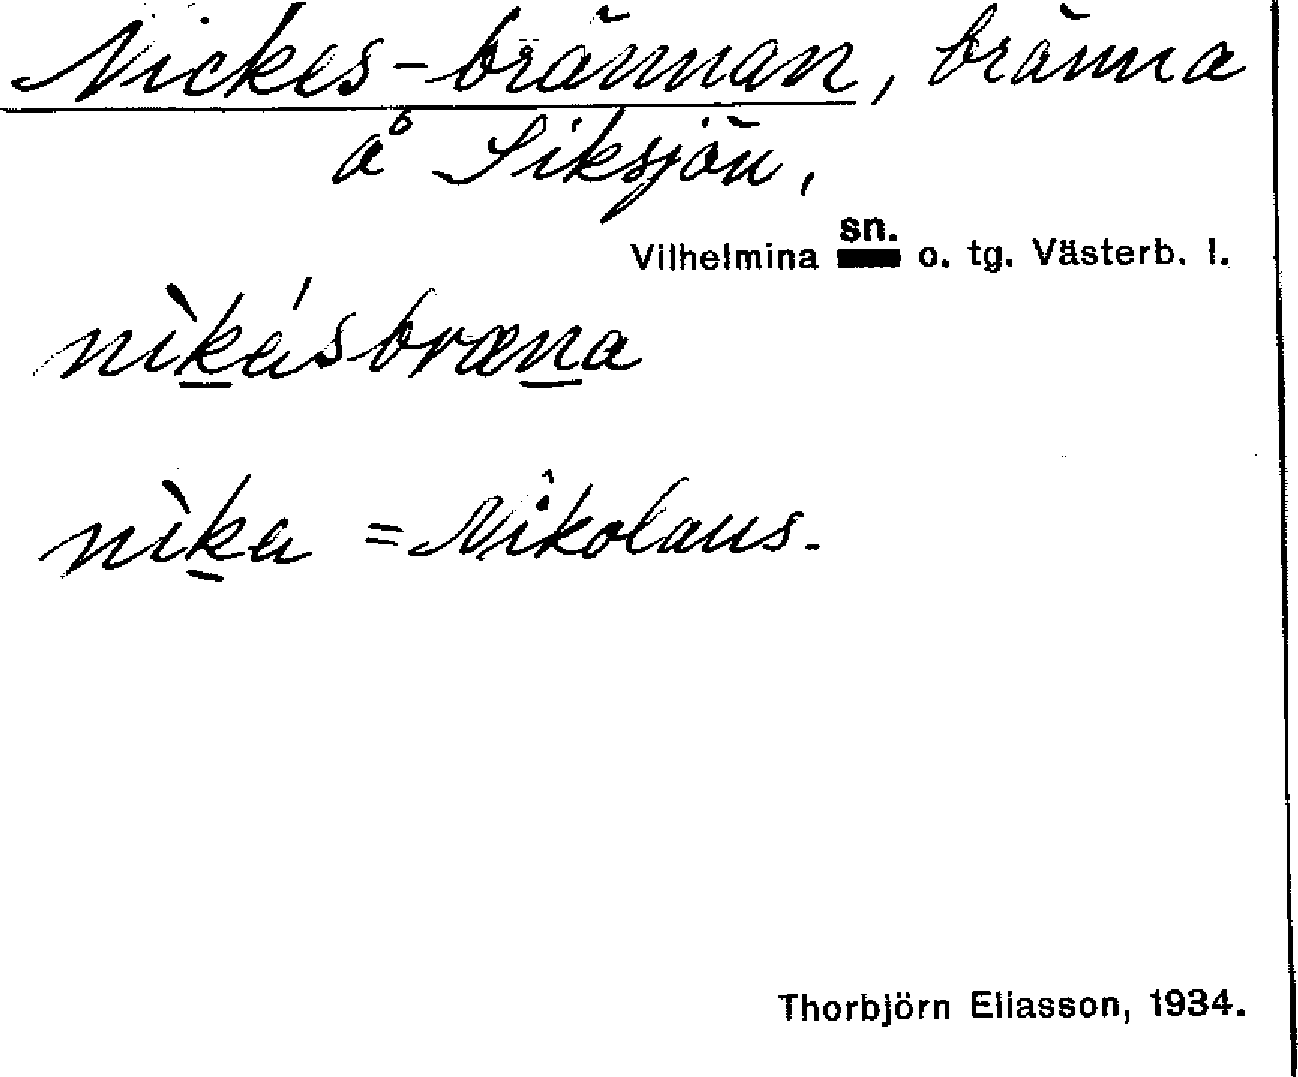 Nickes-brännan, bränna
å Siksjön,
Vilhelmina sn. o. tg. Västerb. l.
nìkásbræna
nìka = Nikolaus.
Thorbjörn Eliasson, 1934.